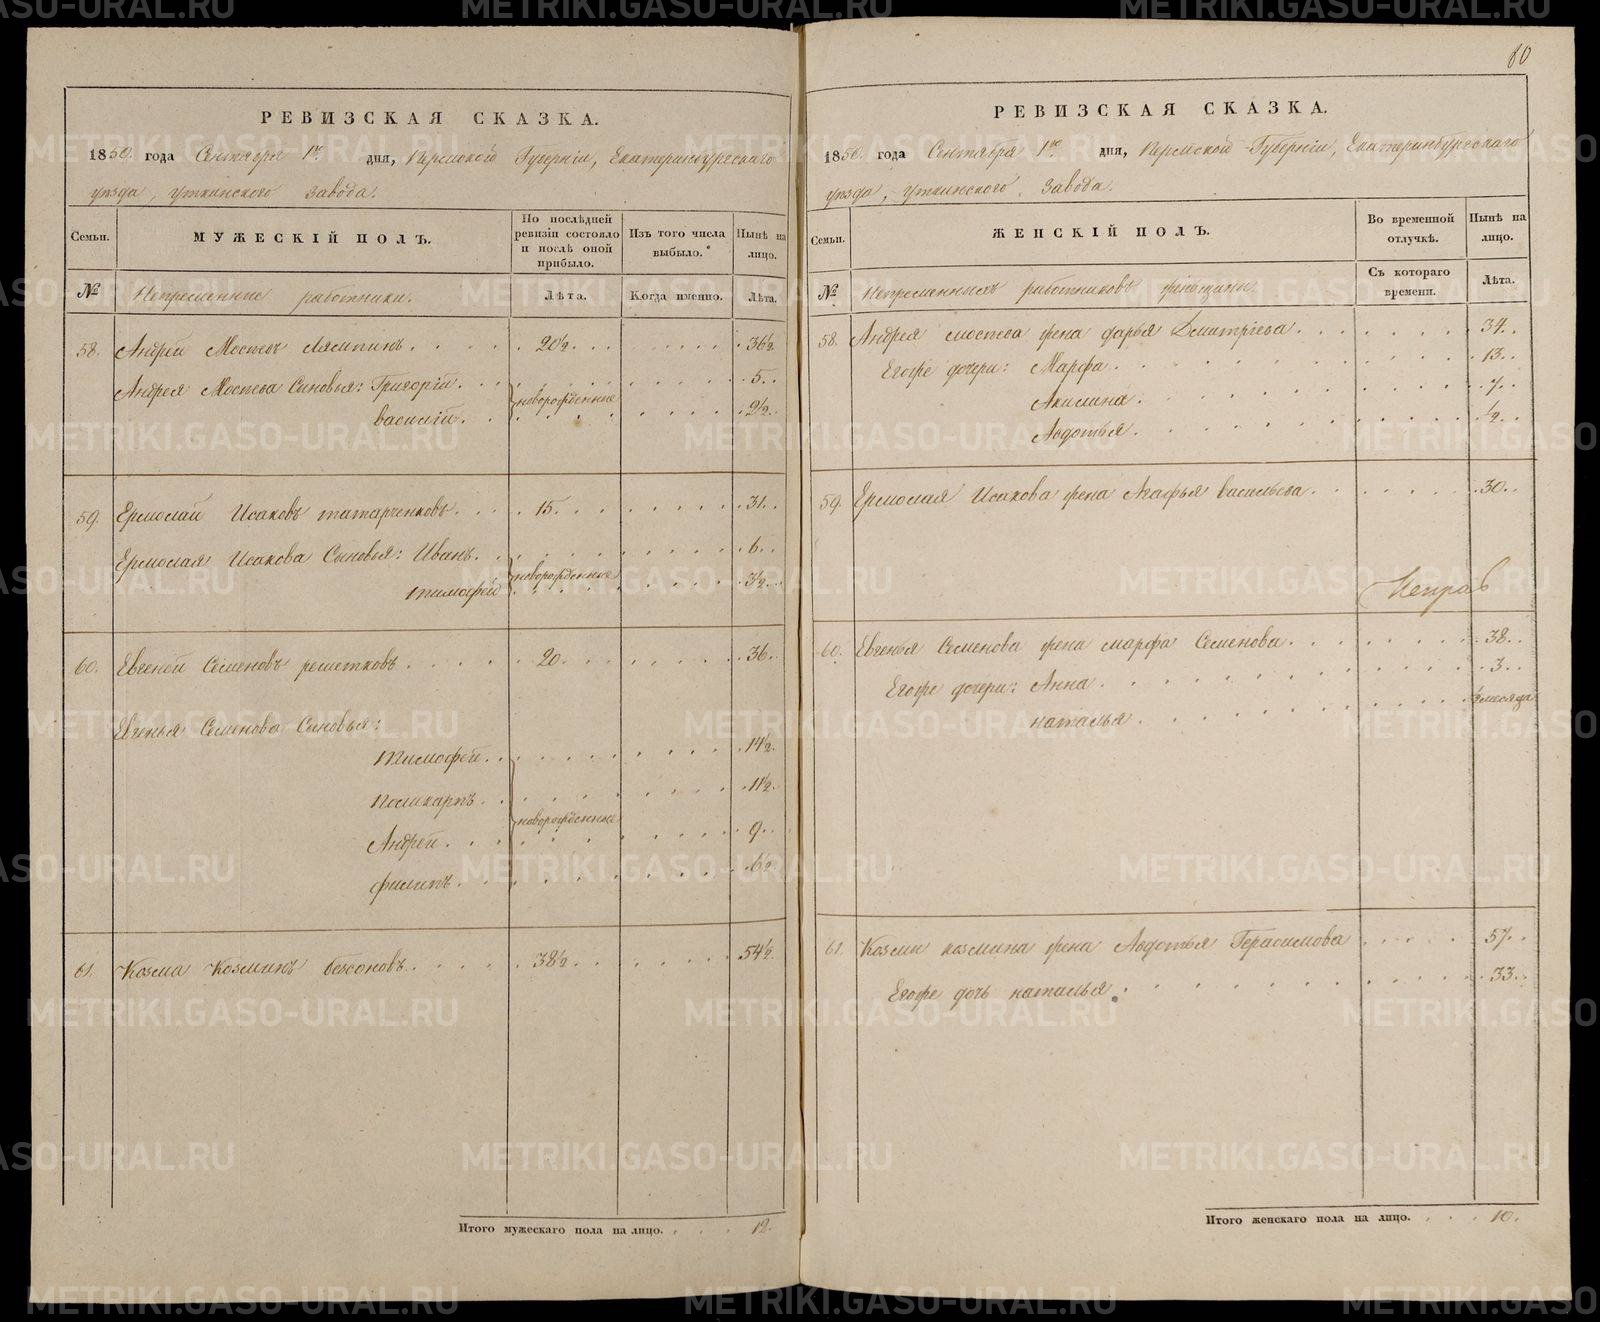 80
РЕВИЗСКАЯ СКАЗКА.
1850. года Сентября 1го дня, Пермской Губерніи, Екатеринбургскаго
уезда, Уткинского Завода.
Семьи.
МУЖЕСКІЙ ПОЛЪ.
По послѣдней ревизіи состояло и послѣ оной прибыло.
Изъ того числа выбыло.
Нынѣ на лицо.
№
Непременные работники.
Лѣта.
Когда именно.
Лѣта.
58. Андрей Мостеевъ 20½ 36½
Андрея Сыновья: Григорій 5
новорожденные
василій 2½
59. Ермолай Исаковъ татарченковъ 15 31
Ермолая Исакова Сыновья: Иванъ 6
новорожденные
тимофей 3½
60. Евгеней Семеновъ решетковъ 20 36
Евгенья Семенова Сыновья:
тимофей 14½
поликарпъ 11½
новорожденные
Андрей 9
филипъ 6½
61. Козма Козминъ безсоновъ 38½ 54½
Итого мужескаго пола на лицо. 12.
РЕВИЗСКАЯ СКАЗКА.
1850. года Сентября 1го дня, Пермской Губерніи, Екатеринбургскаго
уезда, Уткинского Завода.
Семьи.
ЖЕНСКІЙ ПОЛЪ.
Во временной отлучкѣ.
Нынѣ на лицо.
№
Непременныхъ работниковъ женщины
Съ котораго времени.
Лѣта.
58. Андрея жена дарья Дмитріева 34
Егоже дочери: Марфа 13
Акилина 7
Авдотья ½
59. Ермолая Исакова жена Агафья васильева 30
60. Евгенья Семенова жена марфа Семенова 38
Егоже дочери: Анна 3
наталья месяца
61. Козми козмина жена Авдотья Герасимова 57
Егоже дочь наталья 33
Итого женскаго пола на лицо. 10.
METRIKI.GASO-URAL.RU